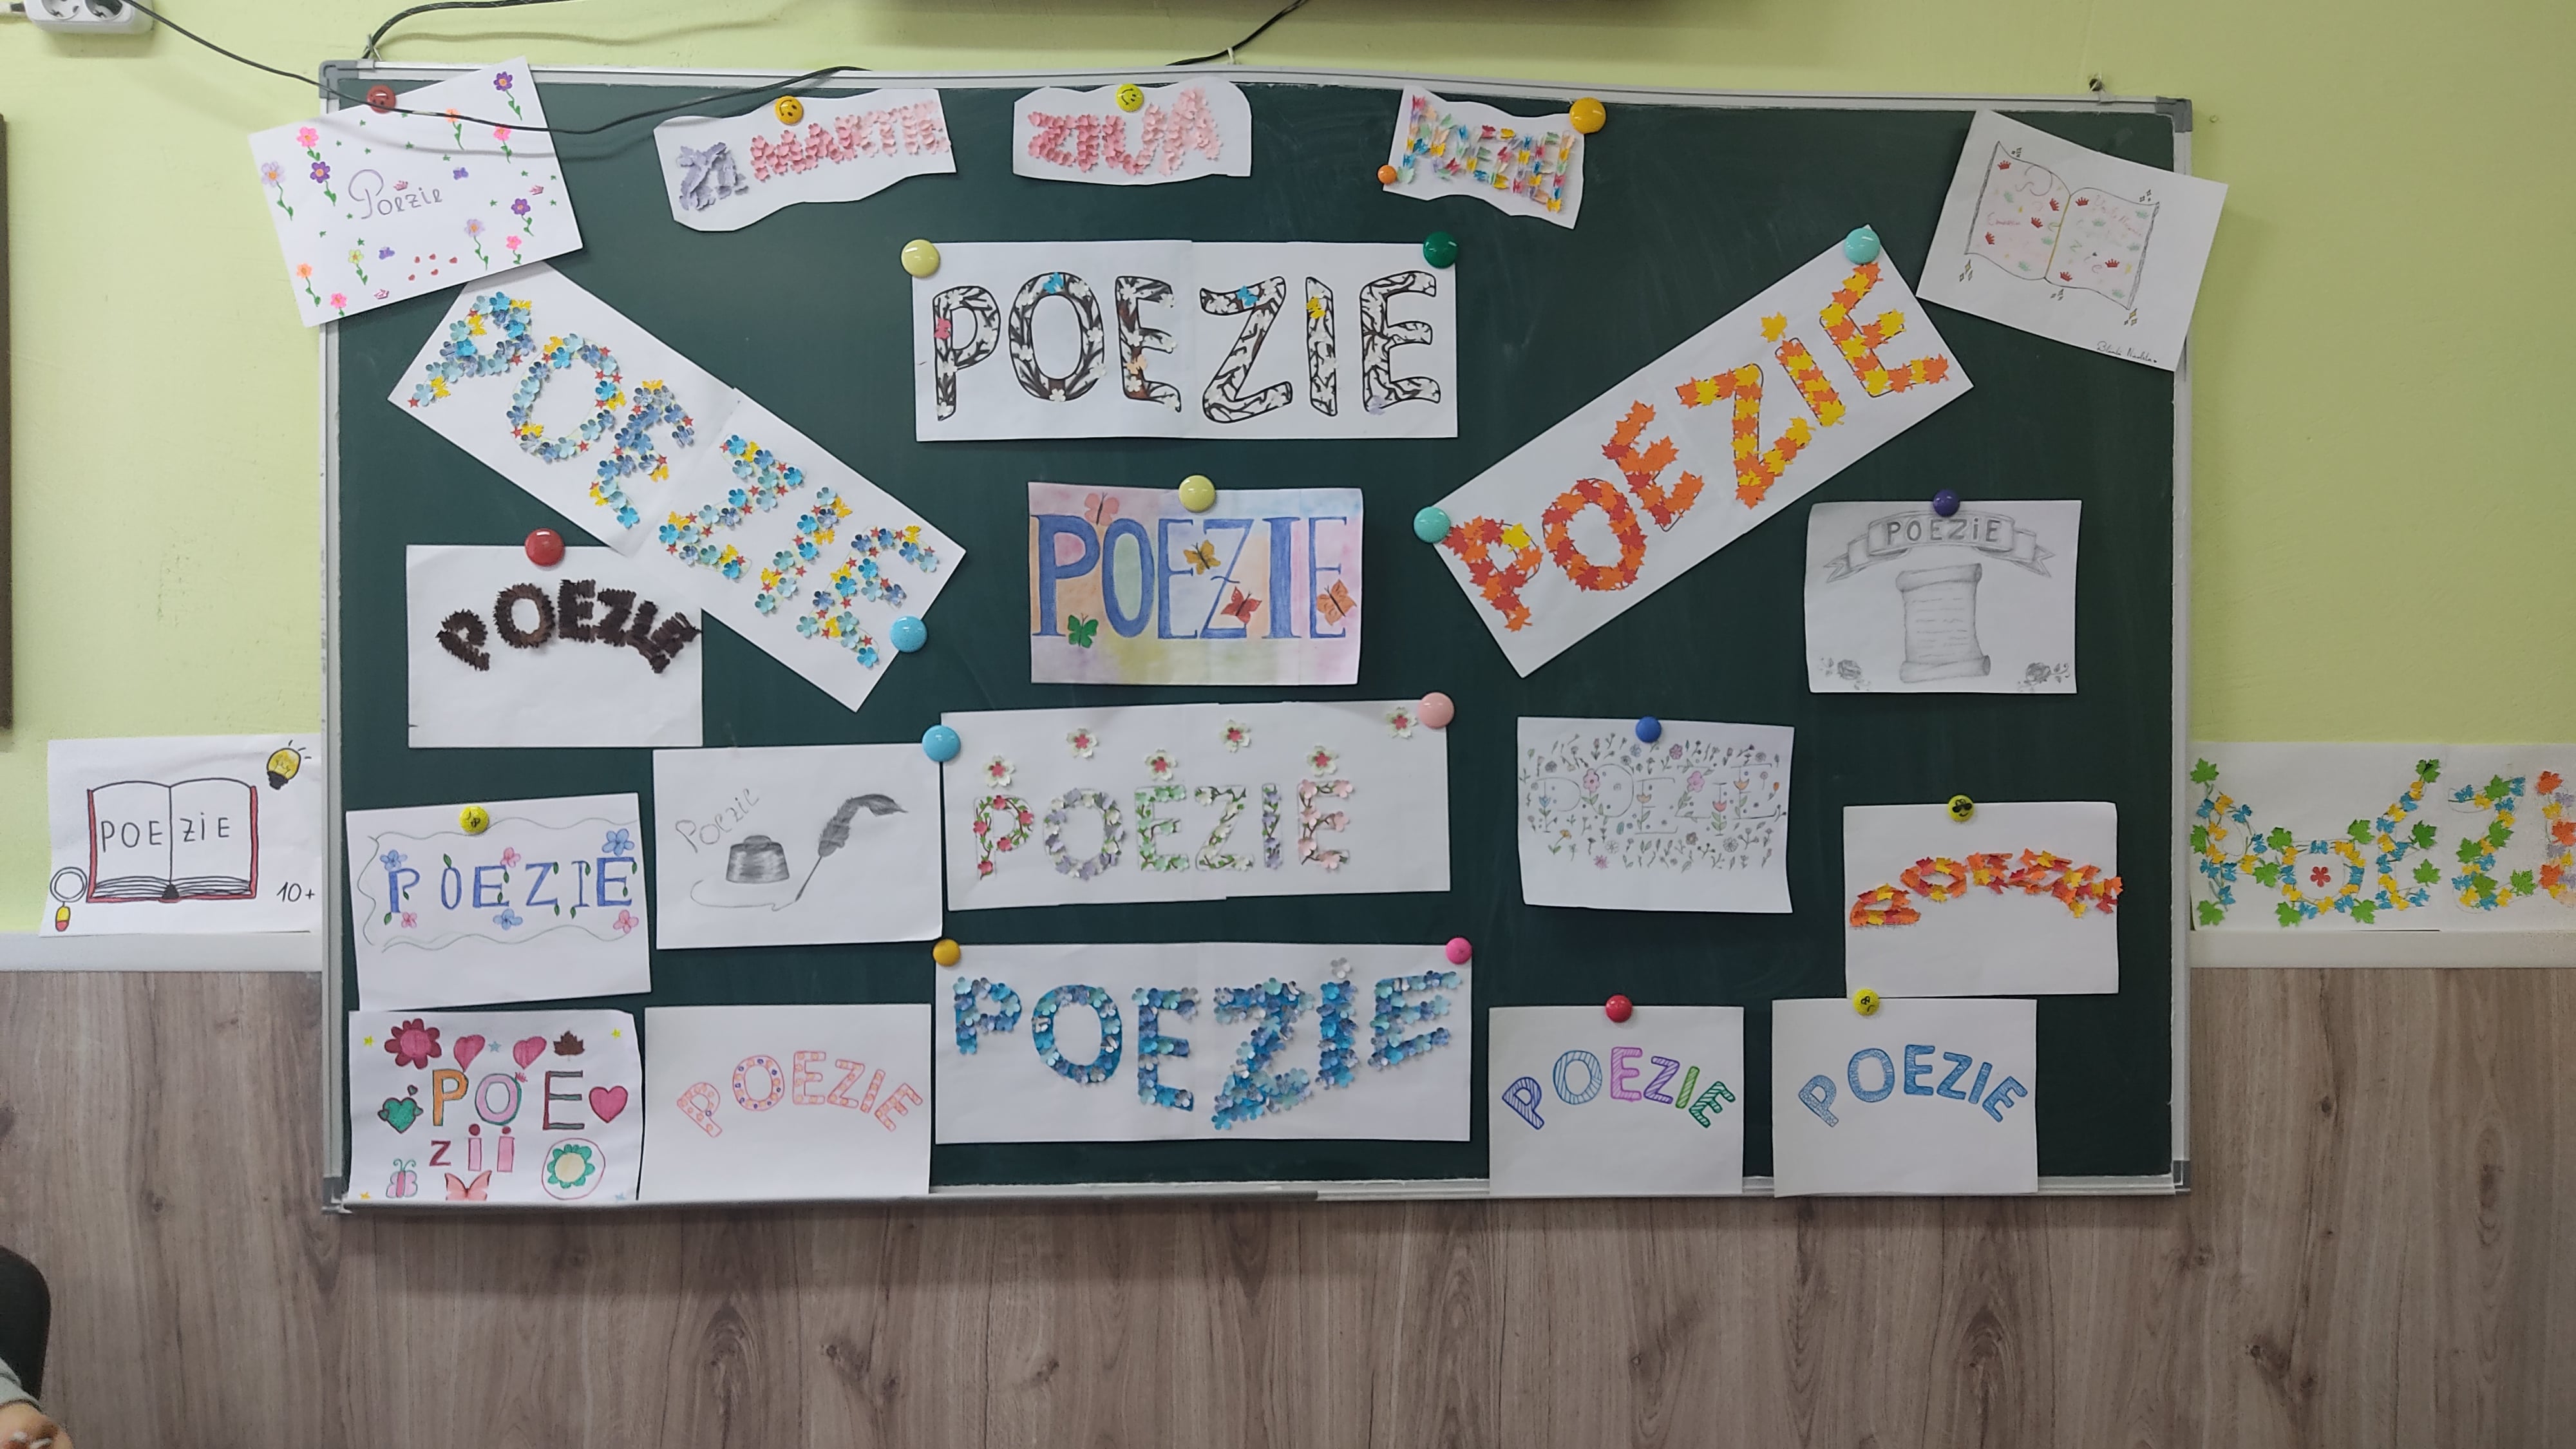 Poezie
21 MARTIE
ZIUA
POEZIEI
POEZIE
POEZIE
POEZIE
POEZIE
POEZIE
POEZIE
POEZIE
POEZIE
10+
POEZIE
Poezie
POEZIE
POEZIE
POEZIE
POEZI
POE
zii
POEZIE
POEZIE
POEZIE
POEZIE